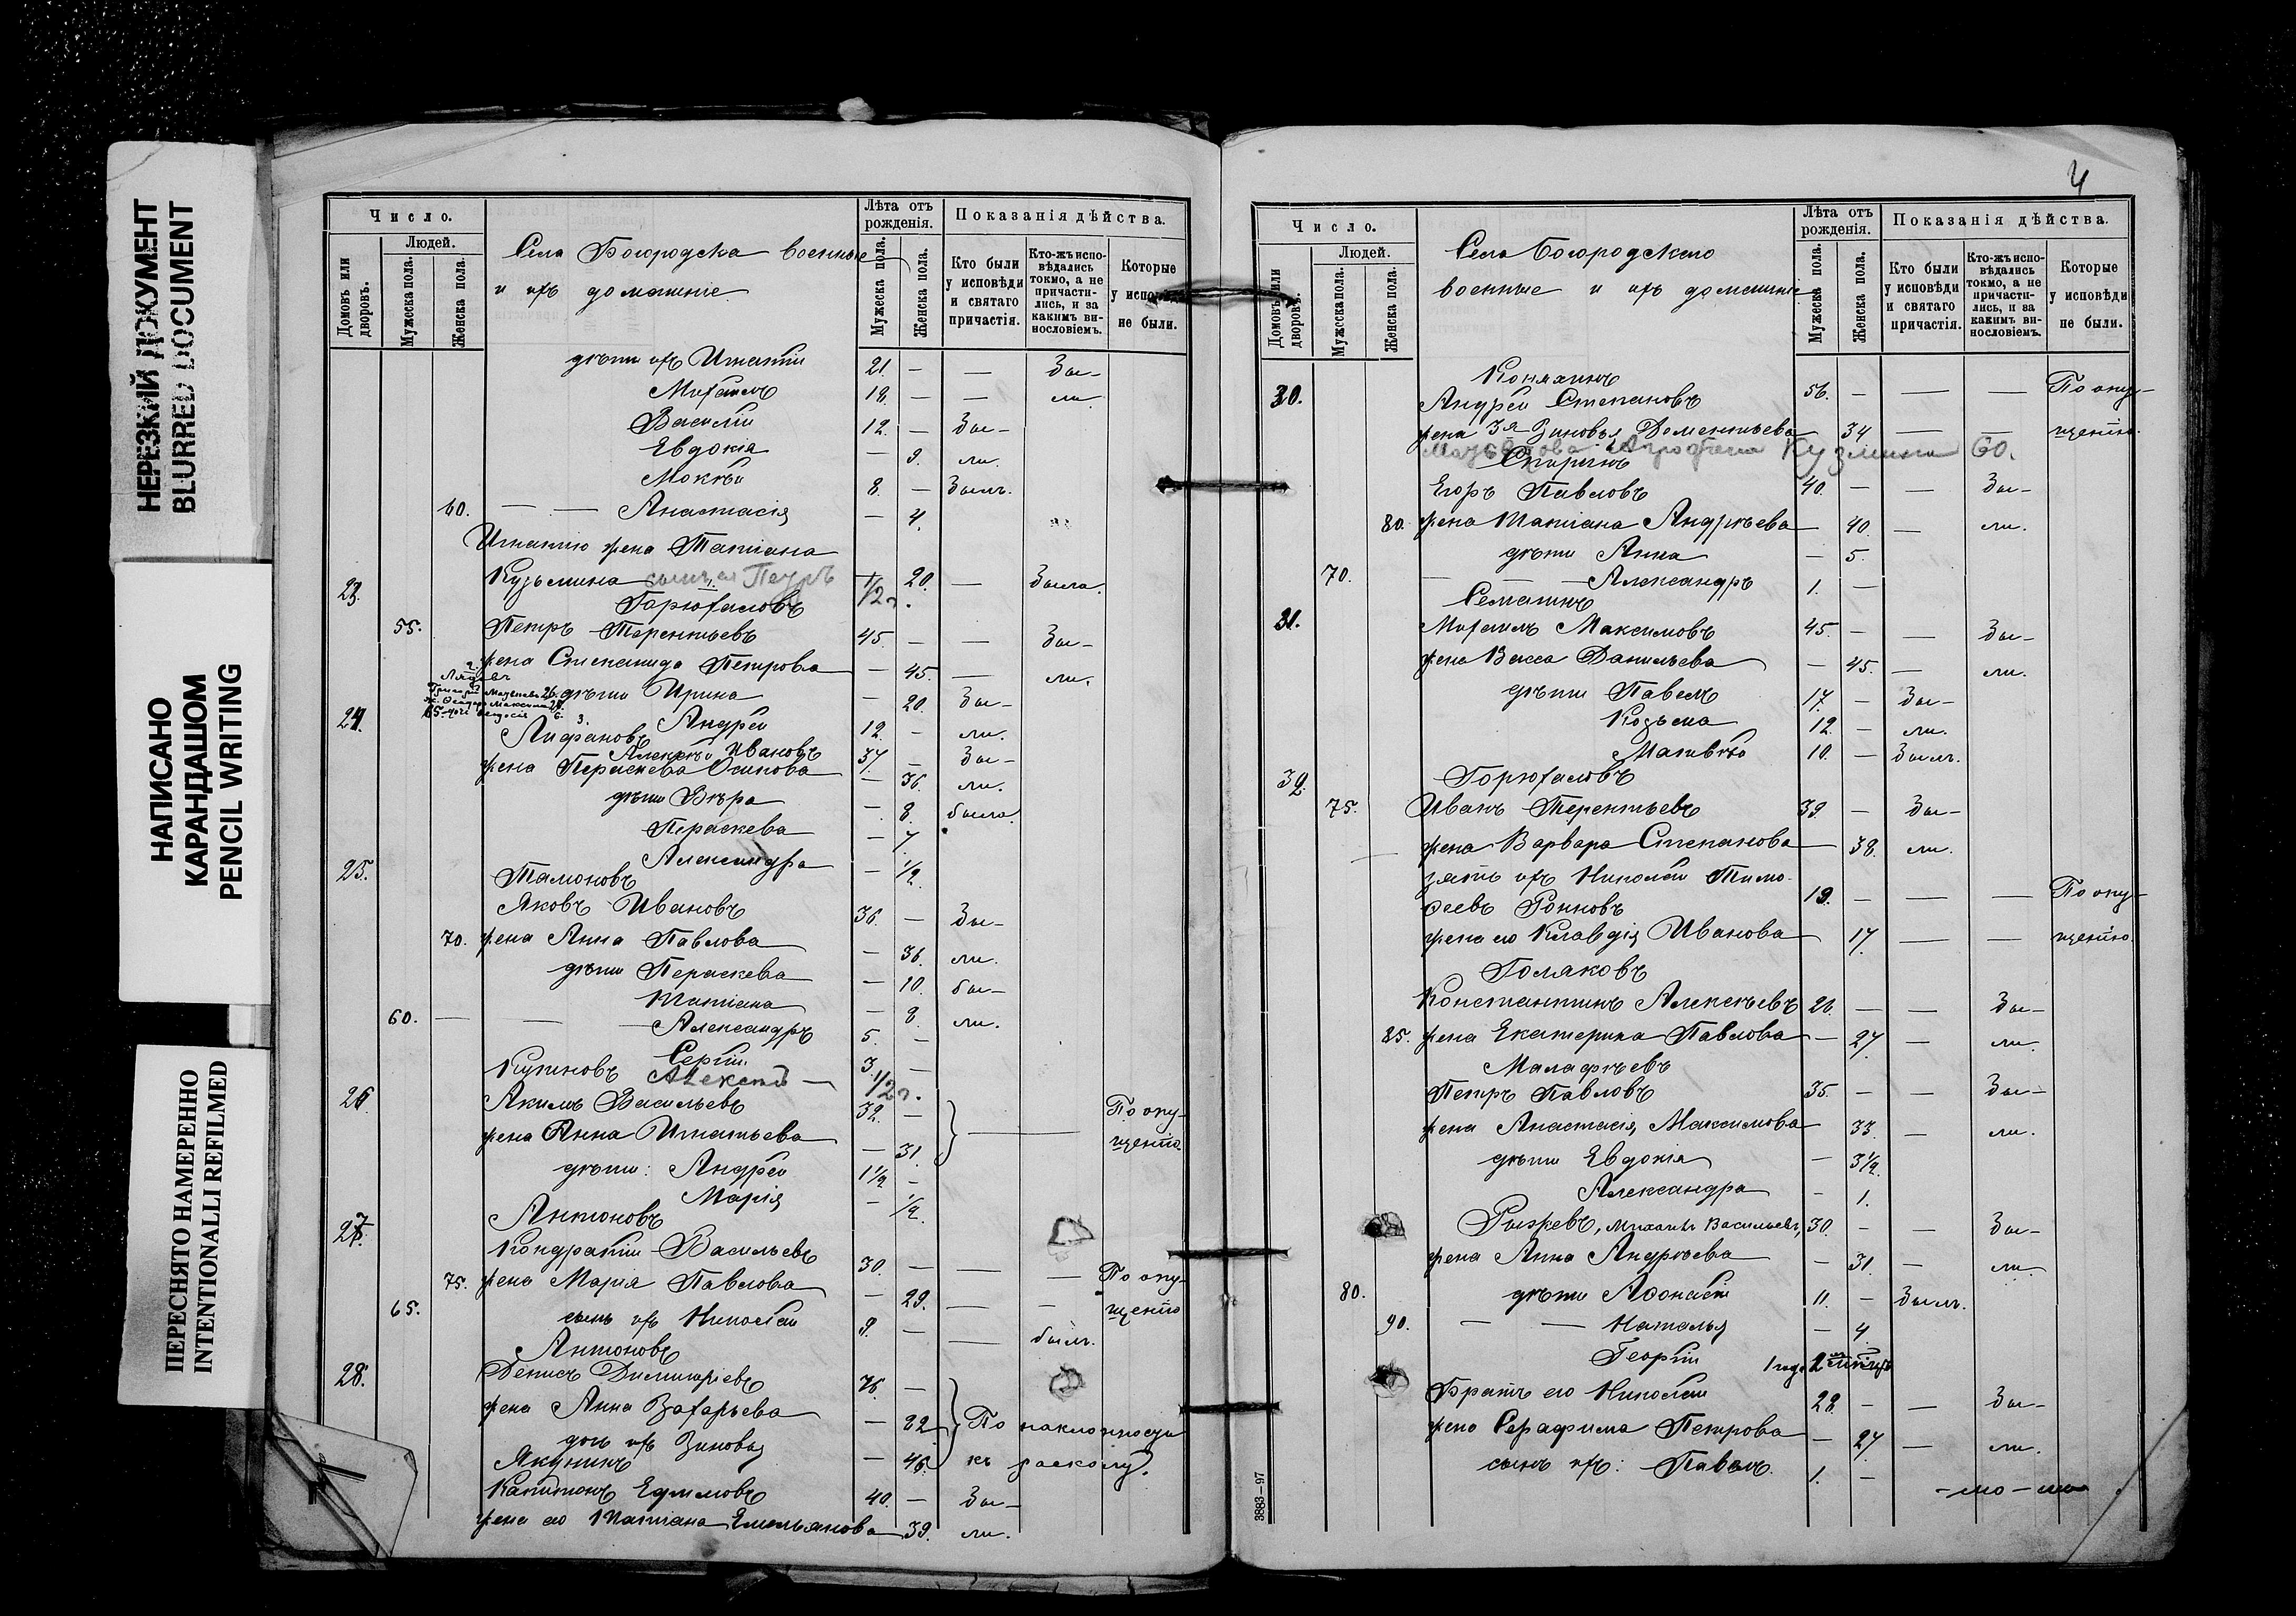 НЕРЕЗКИЙ ДОКУМЕНТ
BLURRED DOCUMENT
НАПИСАНО
КАРАНДАШОМ
PENCIL WRITING
ПЕРЕСНЯТО НАМЕРЕННО
INTENTIONALLI REFILMED
Число.
Людей.
Домовъ или дворовъ.
Мужеска пола.
Женска пола.
Села Богородска военные
и ихъ домашніе
Лѣта отъ рожденія.
Мужеска пола.
Женска пола.
Показанія дѣйства.
Кто были у исповѣди и святаго причастія.
Кто-жъ исповѣдались токмо, а не причастились, и за какимъ винословіемъ.
Которые у исповѣди не были.
дѣти ихъ Игнатій 21. — — Бы-
Михаилъ 18. — — ли
Василій 12. — Бы-
Евдокія — 9. ли.
Мокей 8. — Былъ.
60. — — Анастасія — 4.
Игнатію жена Татіана
Кузьмина 20. — Была.
сынъ ихъ Петръ 1/2 г.
23. Горюхаловъ
55. Петръ Терентьевъ 45. — — Бы-
жена Степанида Петрова — 45. — ли.
дѣти Ирина — 20. Бы-
Андрей 12. — ли.
24. Лифановъ
Алексѣй Ивановъ 37. — Бы-
жена Параскева Осипова — 36. ли.
дѣти Вѣра — 8. была.
Параскева — 7.
Александра — 1/2.
25. Тамоновъ
Яковъ Ивановъ 36. — Бы-
70. жена Анна Павлова — 36. ли.
дѣти Параскева — 10. бы-
Татіана — 8. ли.
60. — — Александръ 5. —
Сергій 3. —
Алексѣй — 1/2 г.
26. Купиновъ
Акимъ Васильевъ 32. — По опу-
жена Анна Игнатьева — 31. щенію.
дѣти: Андрей 1 1/2 —
Марія — 1/2.
27. Антоновъ
Кондратій Васильевъ 30. — — — По опу-
75. жена Марія Павлова — 29. — — щенію
65. сынъ ихъ Николай 9. — — былъ.
28. Антоновъ
Денисъ Димитріевъ 76. —
жена Анна Захарьева — 82 По наклонности
дочь ихъ Зиновья — 46. къ расколу.
Якунинъ
Капитонъ Ефимовъ 40. — Бы-
жена его Татіана Емельянова 39. ли.
4
Число.
Людей.
Домовъ или дворовъ.
Мужеска пола.
Женска пола.
Села Богородского
военные и ихъ домашніе
Лѣта отъ рожденія.
Мужеска пола.
Женска пола.
Показанія дѣйства.
Кто были у исповѣди и святаго причастія.
Кто-жъ исповѣдались токмо, а не причастились, и за какимъ винословіемъ.
Которые у исповѣди не были.
30. Коняхинъ
Андрей Степановъ 56. — — — По опу-
жена 3я Зиновья Дементьева 34 — — щенію.
Кузмина 60.
Спиринъ
Егоръ Павловъ 40. — — Бы-
80. жена Татіана Андреѣва 40. — ли.
дѣти Анна — 5.
70. — — Александръ 1. —
31. Сематинъ
Михаилъ Максимовъ 45. — — Бы-
жена Васса Данильева — 45. — ли.
дѣти Павелъ 17. — Бы-
Козьма 12. — ли.
Матвѣй 10. — Былъ.
32. Горюхаловъ
75. Иванъ Терентьевъ 39. — Бы-
жена Варвара Степанова 38. ли.
зять ихъ Николай Тимо-
ѳеевъ Ронковъ 19. — — — По опу-
жена его Клавдія Иванова 17. — — щенію.
Голяковъ
Константинъ Алексѣевъ 26. — — Бы-
85. жена Екатерина Павлова — 27. — ли.
Малафѣевъ
Петръ Павловъ 35. — — Бы-
жена Анастасія Максимова 33. — ли.
дѣти Евдокія — 3 1/2.
Александра — 1.
Рыжевъ, Михаилъ Васильевъ, 30. — — Бы-
жена Анна Андреѣва — 31. — ли.
80. дѣти Аѳонасій 11. — Былъ.
90. — — Наталья — 4.
Георгій 1 годъ 2
Братъ его Николай 28. — — Бы-
жена Серафима Петрова — 27. — ли.
сынъ ихъ: Павелъ. 1. —
3883—97